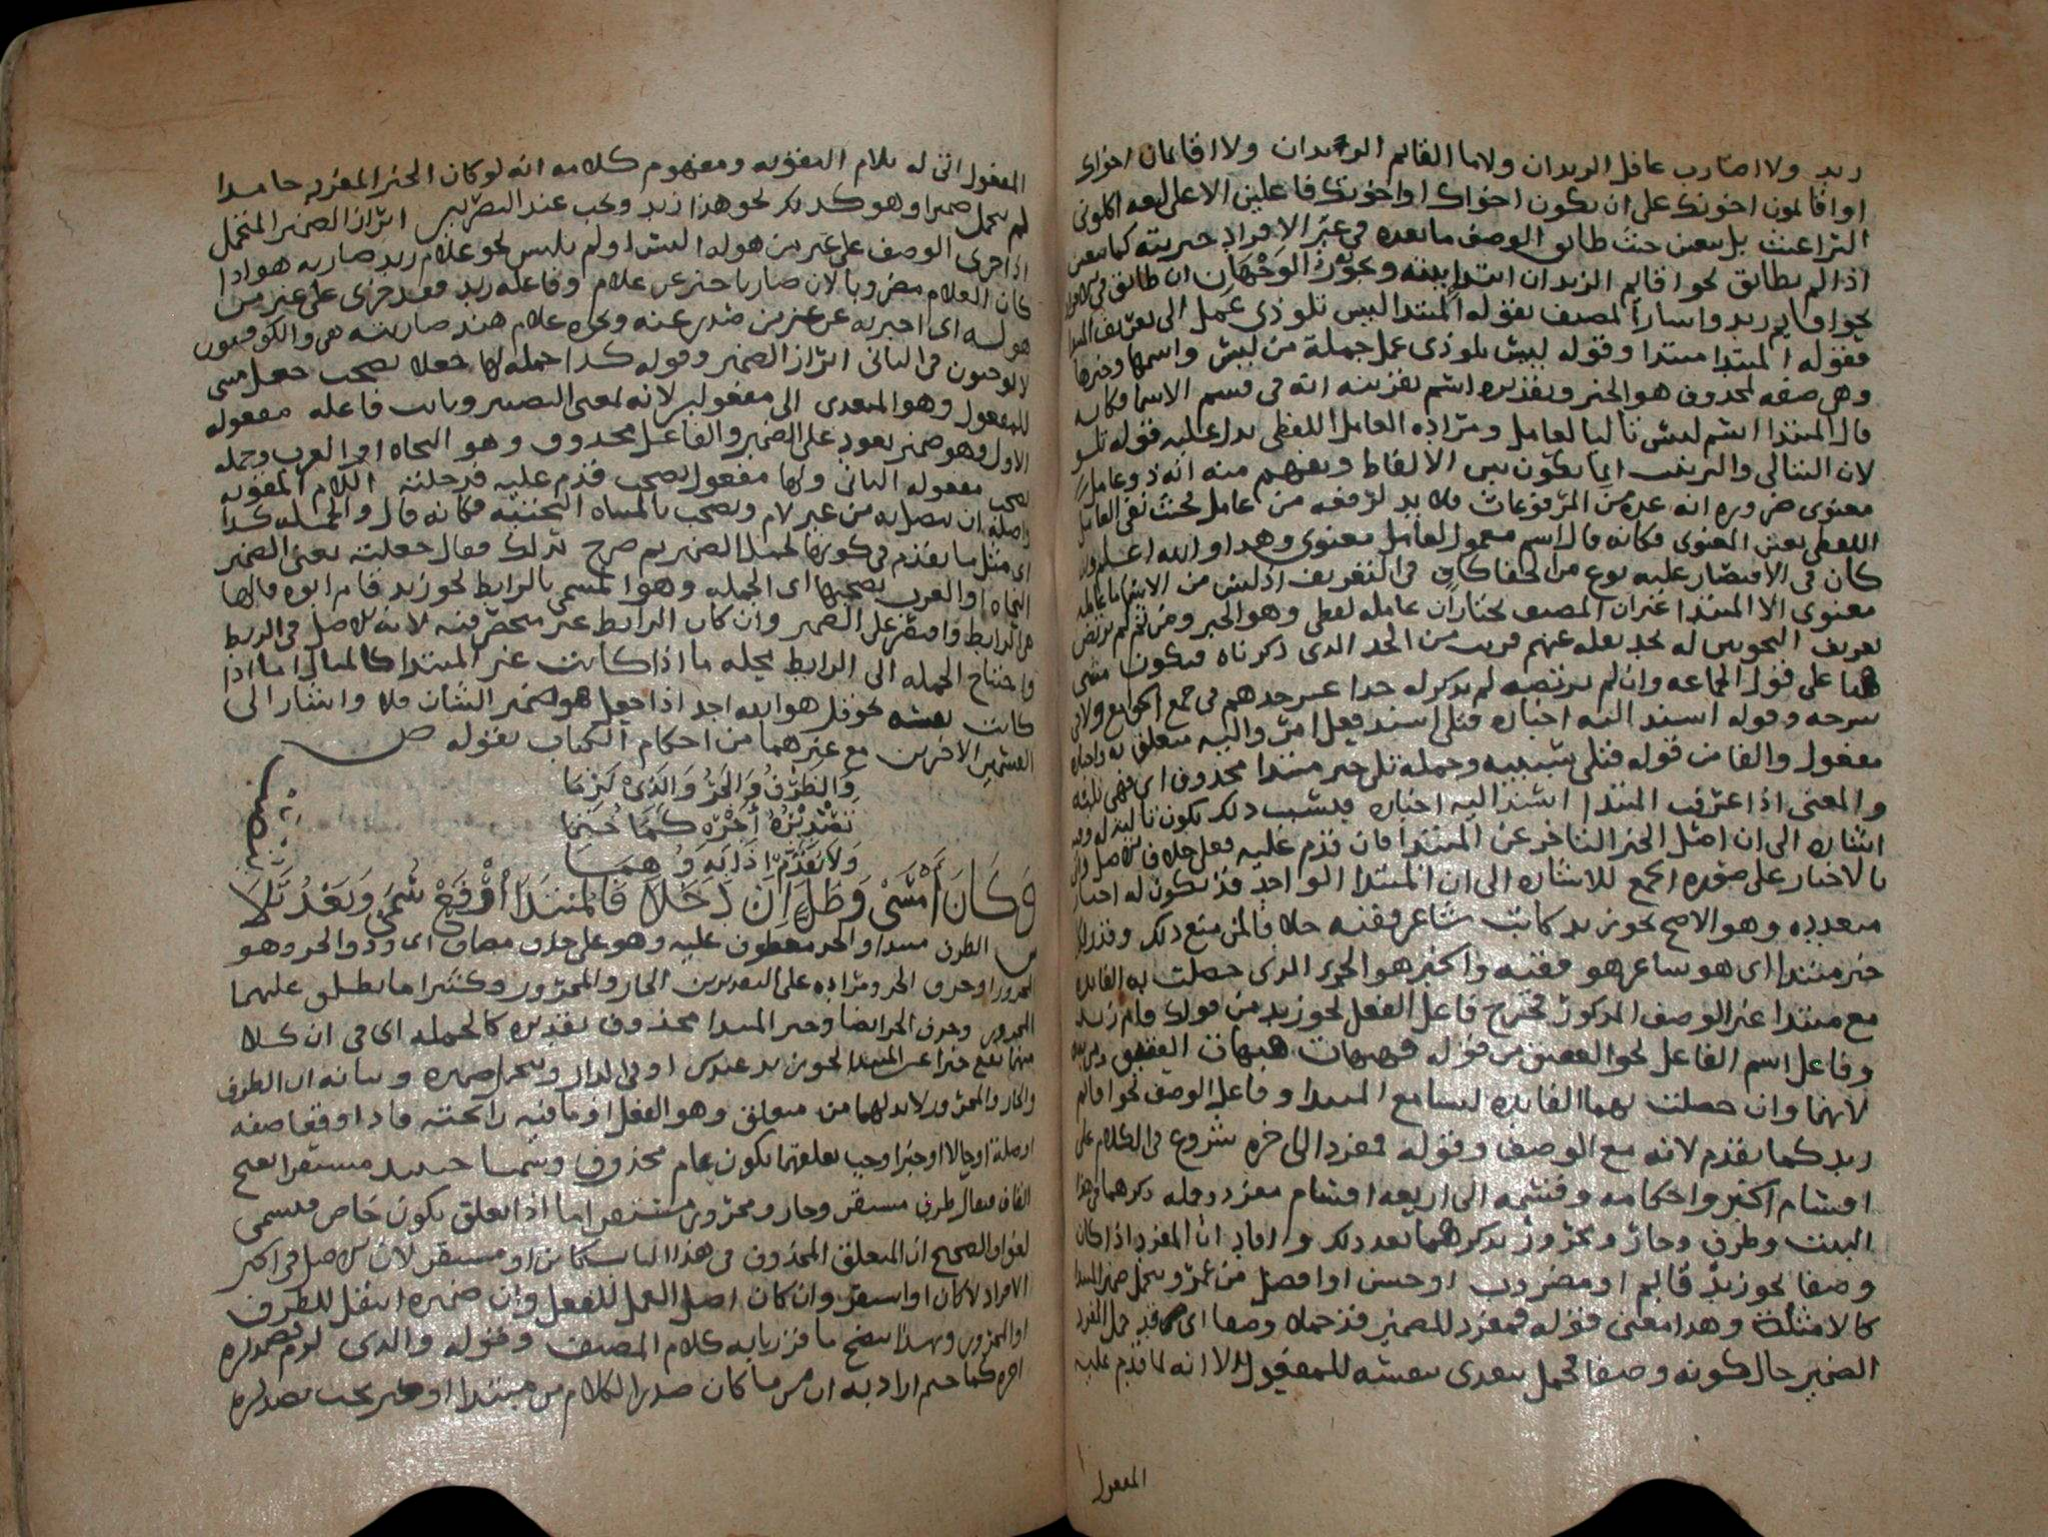 زيد ولا اضارب عاقل الزيدان ولا ما القائم الزيدان ولا اقائمان اخواك
او اقائمون اخوتك على ان يكون اخواك او اخوتك فاعلين الا على لغة اكلوني
البراغيث بل يتعين حيث طابق الوصف ما بعده في غير الافراد خبريته كما يتعين
اذا لم يطابق نحو اقايم الزيدان ابتدائيته ويجوز الوجهان ان طابق في الافراد
نحو اقايم زيد واشار المصنف بقوله المبتدا ليس تلو ذي عمل الى تعريف المبتدا
فقوله المبتدا مبتدا وقوله ليس تلو ذي عمل جملة من ليس واسمها وخبرها
وهي صفة لمحذوف هو الخبر وتقديره اسم بقرينة انه في قسم الاسما فكانه
قال المبتدا اسم ليس تاليا لعامل ومراده العامل اللفظي يدل عليه قوله تلو
لان التالي والترتيب انما يكون بين الالفاظ ويفهم منه انه ذو عامل
معنوي ضرورة انه عده من المرفوعات فلا بد لرفعه من عامل فحيث نفى العامل
اللفظي تعين المعنوي فكانه قال اسم معمول لعامل معنوي وهذا والله اعلم وان
كان في الاقتصار عليه نوع من الخفا كاف في التعريف اذ ليس من الاسما ما عامله
معنوي الا المبتدا غير ان المصنف يختار ان عامله لفظي وهو الخبر ومن ثم لم يرتض
تعريف النحويين له بحد نقله عنهم قريب من الحد الذي ذكرناه فيكون مشى
هنا على قول الجماعة وان لم يرتضه لم يذكر له حدا غير حدهم في جمع الجوامع ولا في
شرحه وقوله اسند اليه اخباره فتلى اسند فعل امر واليه متعلق به واخباره
مفعول والفا من قوله فتلى سببية وجملة تلى خبر مبتدا محذوف اي فهي تليه
والمعنى اذا عرفت المبتدا اسند اليه اخباره فبسبب ذلك يكون تاليا له وفيه
اشارة الى ان اصل الخبر التاخر عن المبتدا فان قدم عليه فعلى خلاف الاصل واتى
بالاخبار على صورة الجمع للاشارة الى ان المبتدا الواحد قد يكون له اخبار
متعددة وهو الاصح نحو زيد كاتب شاعر فقيه خلافا لمن منع ذلك وقدر لكل
خبر مبتدا اي هو شاعر هو فقيه والخبر هو الجزء الذي حصلت به الفايدة
مع مبتدا غير الوصف المذكور فخرج فاعل الفعل نحو زيد من قولك قام زيد
وفاعل اسم الفاعل نحو العقيق من قوله فهيهات هيهات العقيق
لانهما وان حصلت بهما الفايدة ليسا مع المبتدا وفاعل الوصف نحو اقائم
زيد كما تقدم لانه مع الوصف وقوله فمفرد الى اخره شروع في الكلام على
اقسام الخبر واحكامه وقسمه الى اربعة اقسام مفرد وجملة ذكرهما في هذا
البيت وظرف وجار ومجرور يذكرهما بعد ذلك وافاد ان المفرد اذا كان
وصفا نحو زيد قايم او مضروب او حسن او افضل من عمرو يتحمل ضمير المبتدا
كالامثلة وهذا معنى قوله فمفرد للضمير قد حملا وصفا اي قد حمل المفرد
الضمير حال كونه وصفا فحمل يتعدى بنفسه للمفعول الا انه لما قدم عليه
المفعول
المفعول اتى له بلام التقوية ومفهوم كلامه انه لو كان الخبر المفرد جامدا
لم يتحمل ضميرا وهو كذلك نحو هذا زيد ويجب عند البصريين ابراز الضمير المتحمل
اذا جرى الوصف على غير من هو له البس او لم يلبس نحو غلام زيد ضاربه هو اذا
كان الغلام مضروبا لان ضاربا خبر عن غلام وفاعله زيد فقد جرى على غير من
هو له اي اخبر به عن غير من صدر عنه ونحوه غلام هند ضاربته هي والكوفيون
لا يوجبون في الثاني ابراز الضمير وقوله كذا جملة لها جعلا يصحب جعل مبني
للمفعول وهو المتعدي الى مفعولين لانه بمعنى التصيير ونايب فاعله مفعوله
الاول وهو ضمير يعود على الضمير والفاعل محذوف وهو النحاة او العرب وجملة
يصحب مفعوله الثاني ولها مفعول يصحب قدم عليه فدخلته اللام المقوية
واصله ان يتصل به من غير لام ويصحب بالمثناة التحتية فكانه قال والجملة كذا
اي مثل ما تقدم في كونها تحمل الضمير ثم صرح بذلك فقال جعلته يعني الضمير
النحاة او العرب يصحبها اي الجملة وهو المسمى بالرابط نحو زيد قام ابوه فالها
هي الرابط واقتصر على الضمير وان كان الرابط غير منحصر فيه لانه الاصل في الربط
واحتياج الجملة الى الرابط محله ما اذا كانت غير المبتدا كالمثال اما اذا
كانت نفسه نحو قل هو الله احد اذا جعل هو ضمير الشان فلا واشار الى
القسمين الاخرين مع غيرهما من احكام الكتاب بقوله ص
وَالظَّرْفُ وَالجَرُّ وَالَّذِي لَزِمَا
تَصْدِيْرُهُ أَخِّرْهُ كَمَا حُتِمَا
وَلاَ تُقَدِّمْ إِذَا
وَكَانَ أَمْسَى وَظَلَّ إِنْ دَخَلَا فَالمُبْتَدَا ارْفَعْ سُمَى وَبَعْدُ تَلَا
ش الظرف مبتدا والجر معطوف عليه وهو على حذف مضاف اي وذو الجر وهو
المجرور او حرف الجر ومراده على التقديرين الجار والمجرور وكثيرا ما يطلق عليهما
المجرور وحرف الجر ايضا وخبر المبتدا محذوف تقديره كالجملة اي في ان كلا
منهما يقع خبرا عن المبتدا نحو زيد عندك او في الدار ويتحمل ضميره وبيانه ان الظرف
والجار والمجرور لا بد لهما من متعلق وهو الفعل او ما فيه رائحته فاذا وقعا صفة
او صلة او حالا او خبرا وجب تعلقهما بكون عام محذوف وسميا حينئذ مستقرا بفتح
القاف فيقال ظرف مستقر وجار ومجرور مستقر اما اذا تعلق بكون خاص فيسمى
لغوا والصحيح ان المتعلق المحذوف في هذا الباب كائن او مستقر لان الاصل في الخبر
الافراد لا كان او استقر وان كان اصل العمل للفعل وان ضميره انتقل للظرف
او المجرور وبهذا يتضح ما قررنا به كلام المصنف وقوله والذي لزم تصديره
اخره كما حتم اراد به ان من ما كان صدر الكلام من مبتدا او خبر يجب تصديره